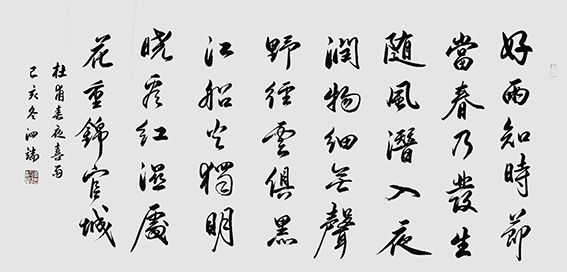 好雨知時節
當春乃發生
随風潛入夜
潤物細無聲
野徑雲俱黑
江船火獨明
曉看紅濕處
花重錦官城
杜甫春夜喜雨
己亥冬泗端